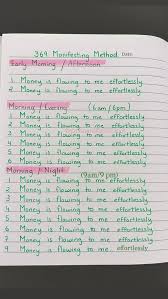 369 Manifesting Method Date
Early Morning / Afternoon
1 Money is flowing to me effortlessly
2 Money is flowing to me effortlessly
3 Money is flowing to me effortlessly
Morning / Evening (6am/6pm)
1 Money is flowing to me effortlessly
2 Money is flowing to me effortlessly
3 Money is flowing to me effortlessly
4 Money is flowing to me effortlessly
5 Money is flowing to me effortlessly
6 Money is flowing to me effortlessly
Morning / Night (9am/9pm)
1 Money is flowing to me effortlessly
2 Money is flowing to me effortlessly
3 Money is flowing to me effortlessly
4 Money is flowing to me effortlessly
5 Money is flowing to me effortlessly
6 Money is flowing to me effortlessly
7 Money is flowing to me effortlessly
8 Money is flowing to me effortlessly
9 Money is flowing to me effortlessly